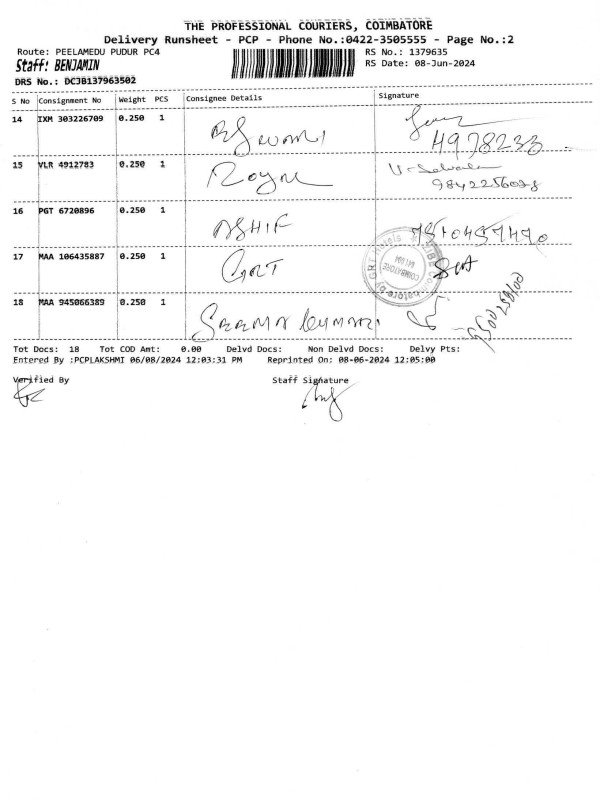 THE PROFESSIONAL COURIERS, COIMBATORE
Delivery Runsheet - PCP - Phone No.:0422-3505555 - Page No.:2
Route: PEELAMEDU PUDUR PC4 RS No.: 1379635
Staff: BENJAMIN RS Date: 08-Jun-2024
DRS No.: DCJB137963502
S No Consignment No Weight PCS Consignee Details Signature
14 IXM 303226709 0.250 1
4978233
15 VLR 4912783 0.250 1 Royal
9842256038
16 PGT 6720896 0.250 1 ASHIF
17 MAA 106435887 0.250 1 GRT
COIMBATORE
18 MAA 945066389 0.250 1
Tot Docs: 18 Tot COD Amt: 0.00 Delvd Docs: Non Delvd Docs: Delvy Pts:
Entered By :PCPLAKSHMI 06/08/2024 12:03:31 PM Reprinted On: 08-06-2024 12:05:00
Verified By Staff Signature